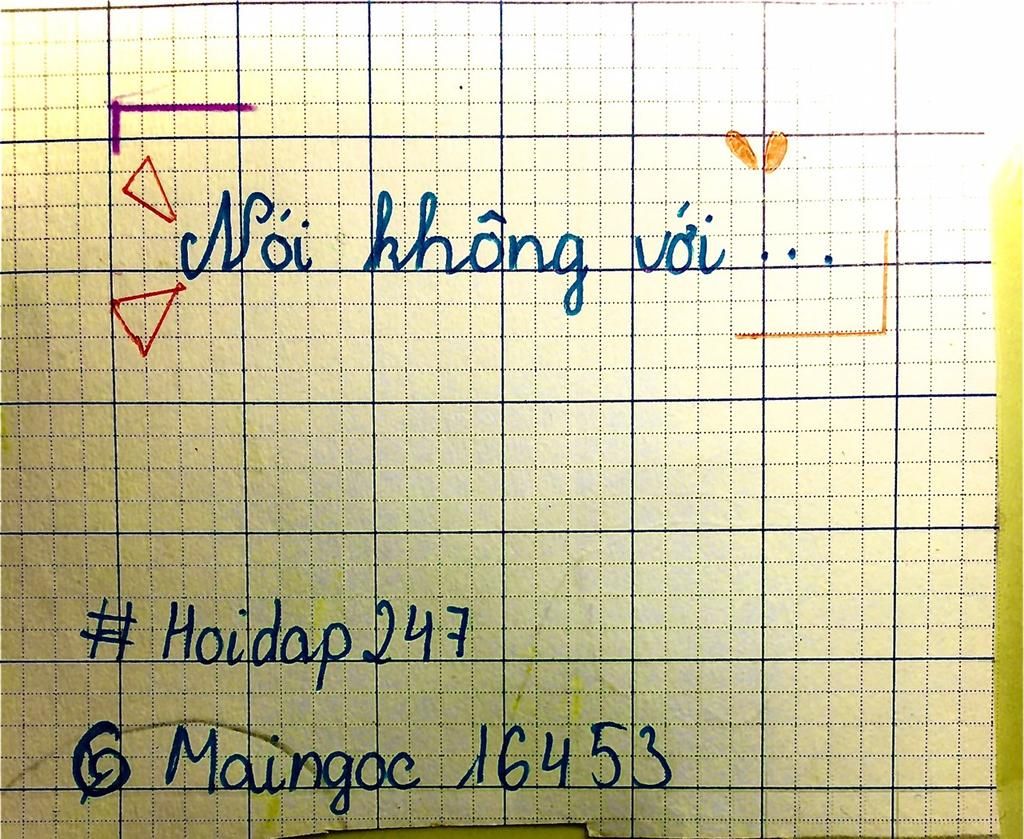 Nói không với ...
# Hoidap247
© Maingoc 16453